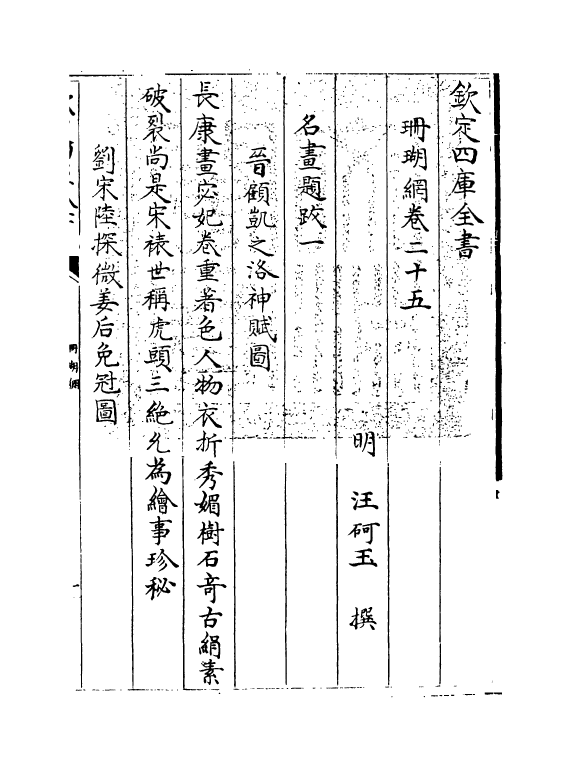 欽定四庫全書
珊瑚網卷二十五
明 汪砢玉 撰
名畫題跋一
晉顧凱之洛神賦圖
長康畫宓妃卷重著色人物衣折秀媚樹石奇古絹素
破裂尚是宋裱世稱虎頭三絶允為繪事珍秘
劉宋陸探微姜后免冠圖
珊瑚網
一